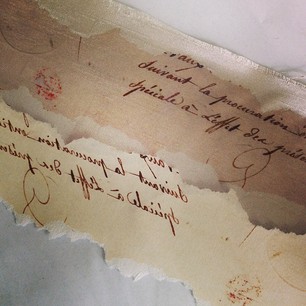 aux
Suivant la procuration
Spéciale à L'effet des
aux
Suivant la procuration
Spéciale à L'effet des